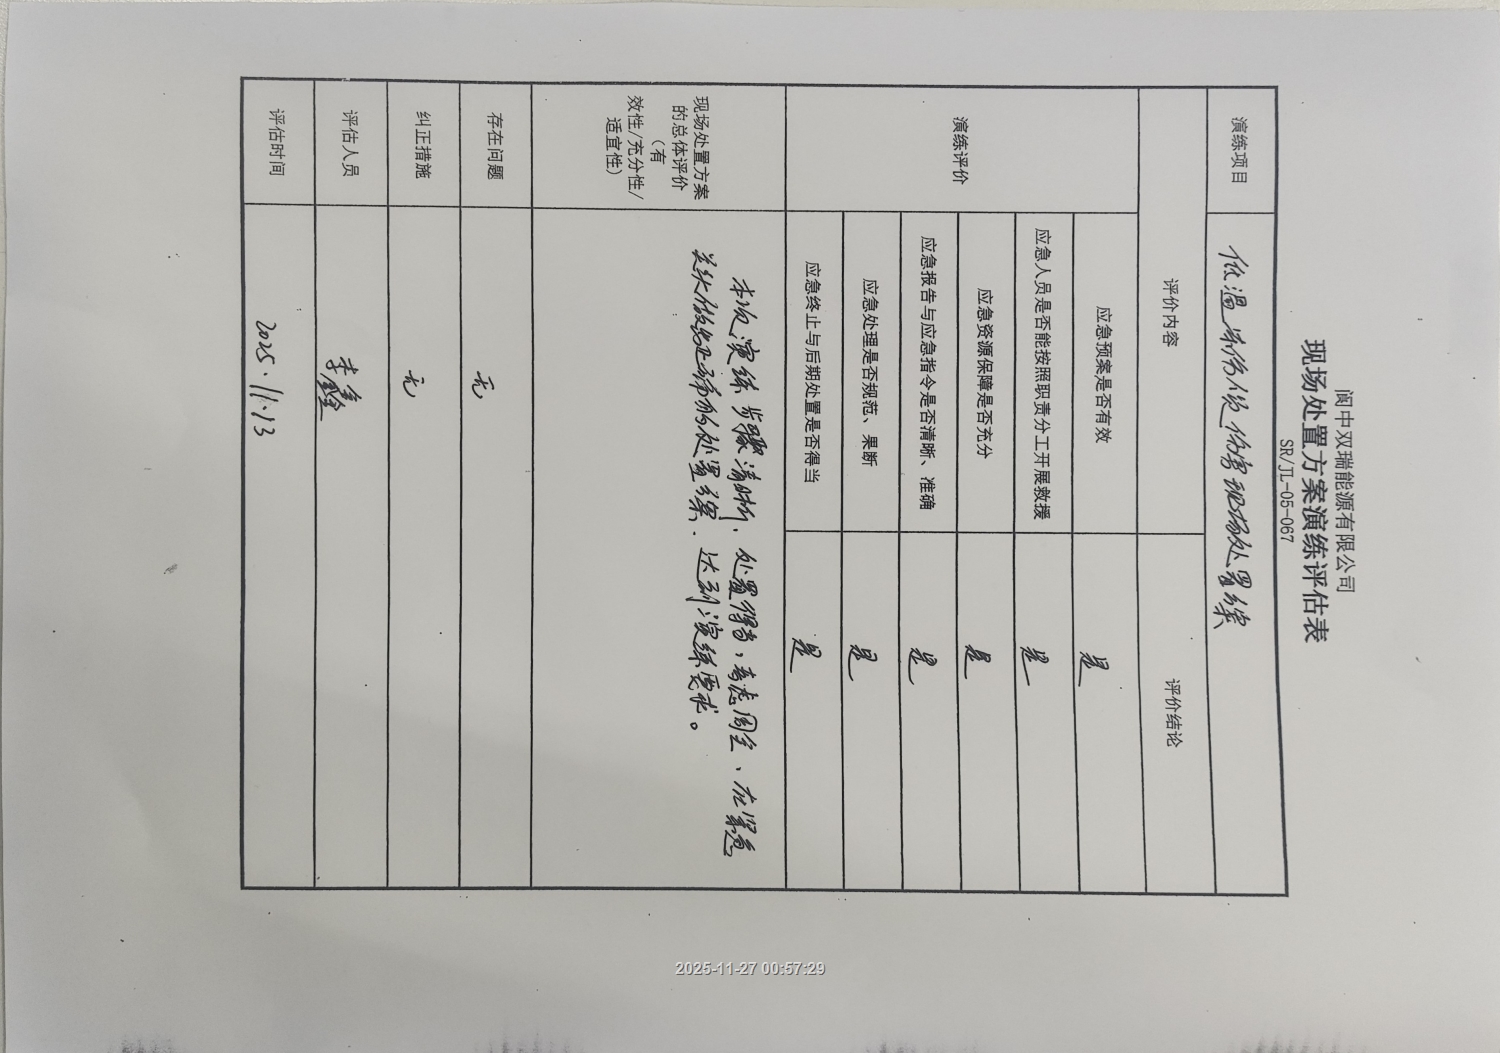 阆中双瑞能源有限公司
现场处置方案演练评估表
SR/JL-05-067
演练项目
低温冻伤人员伤害现场处置方案
评价内容
评价结论
演练评价
应急预案是否有效
是
应急人员是否能按照职责分工开展救援
是
应急资源保障是否充分
是
应急报告与应急指令是否清晰、准确
是
应急处理是否规范、果断
是
应急终止与后期处置是否得当
是
现场处置方案
的总体评价
(有
效性/充分性/
适宜性)
本次演练步骤清晰、处置得当,考虑周全、在紧急
关头做出正确的处置方案、达到演练要求。
存在问题
无
纠正措施
无
评估人员
李鑫
评估时间
2025.11.13
2025-11-27 00:57:29